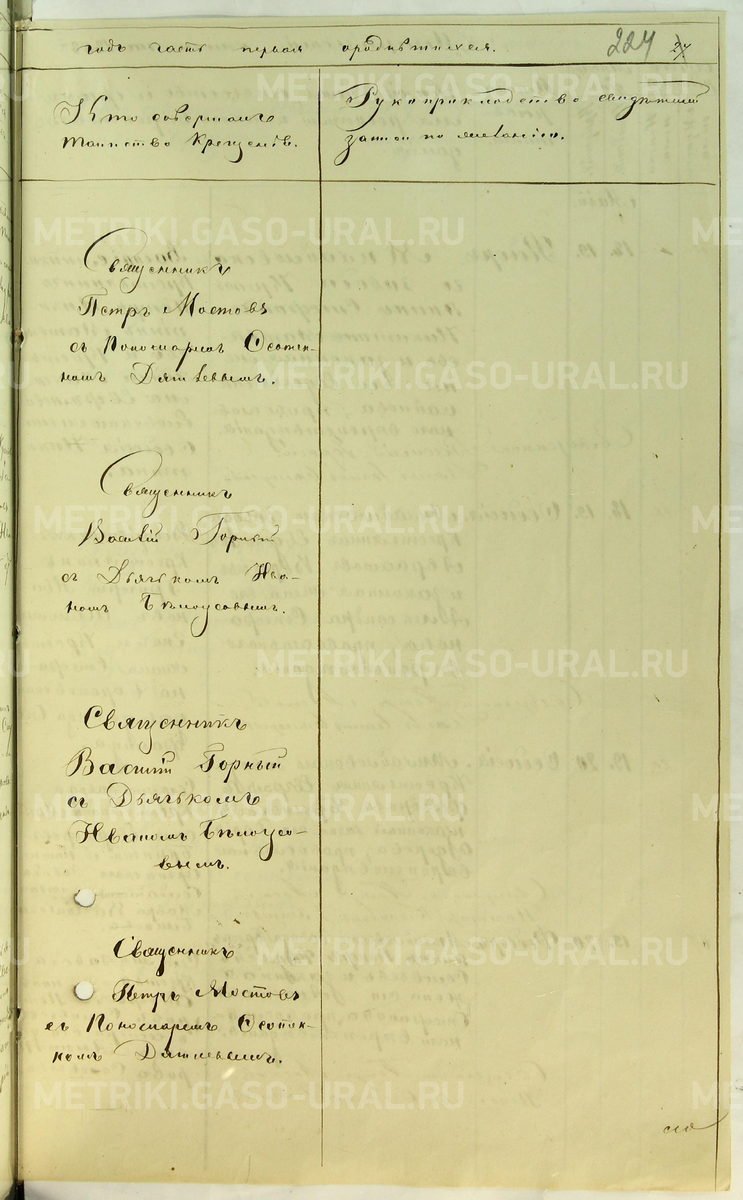 годъ часть первая о родившихся. 227 27
Кто совершалъ
таинство Крещенія.
Рукоприкладство свидѣтелей
записи по желанію.
Священникъ
Петръ Мостовъ
съ Пономаремъ
номъ
Священникъ
Василій Горный
съ Дьячькомъ Ива-
номъ Бѣлоусовымъ.
Священникъ
Василій Горный
съ Дьячькомъ
Иваномъ Бѣлоусо-
вымъ.
Священникъ
Петръ Мостовъ
съ Пономаремъ
METRIKI.GASO-URAL.RU